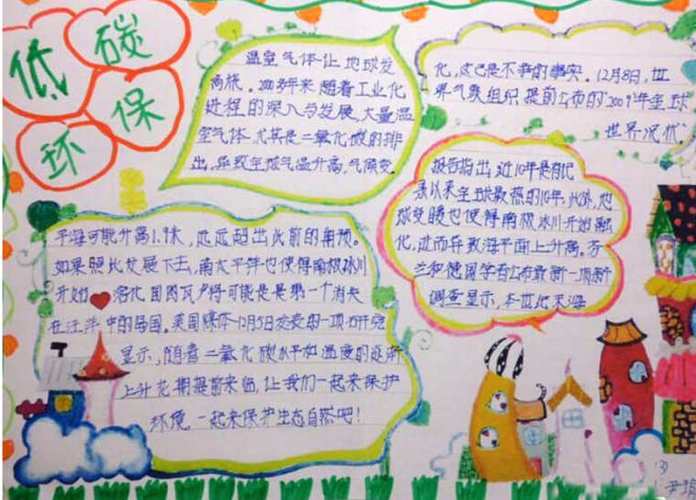 低碳
环保
温室气体让地球发
高烧。200多年来,随着工业化
进程的深入与发展,大量温
室气体,尤其是二氧化碳的排
出,导致全球气温升高,气候变
化,这已是不争的事实。12月8日,世
界气象组织提前公布的"2009年全球
世界况状"
报告指出,近10年是有记
录以来全球最热的10年,此外,地
球变暖也使得南极冰川开始融
化,进而导致海平面上升高。芬
兰和德国学者公布最新一项新
调查显示,本世纪末海
平海可能升高1.9米,远远超出此前的角预。
如果照此发展下去,南太平洋也使得南极冰川
开始 溶化 国图瓦卢将可能是是第一个消失
在汪洋中的岛国。美国媒体12月5日发表的一项研究
显示,随着二氧化碳水平和温度的逐渐
上升花期提前来临,让我们一起来保护
环境,一起来保护生态自然吧!